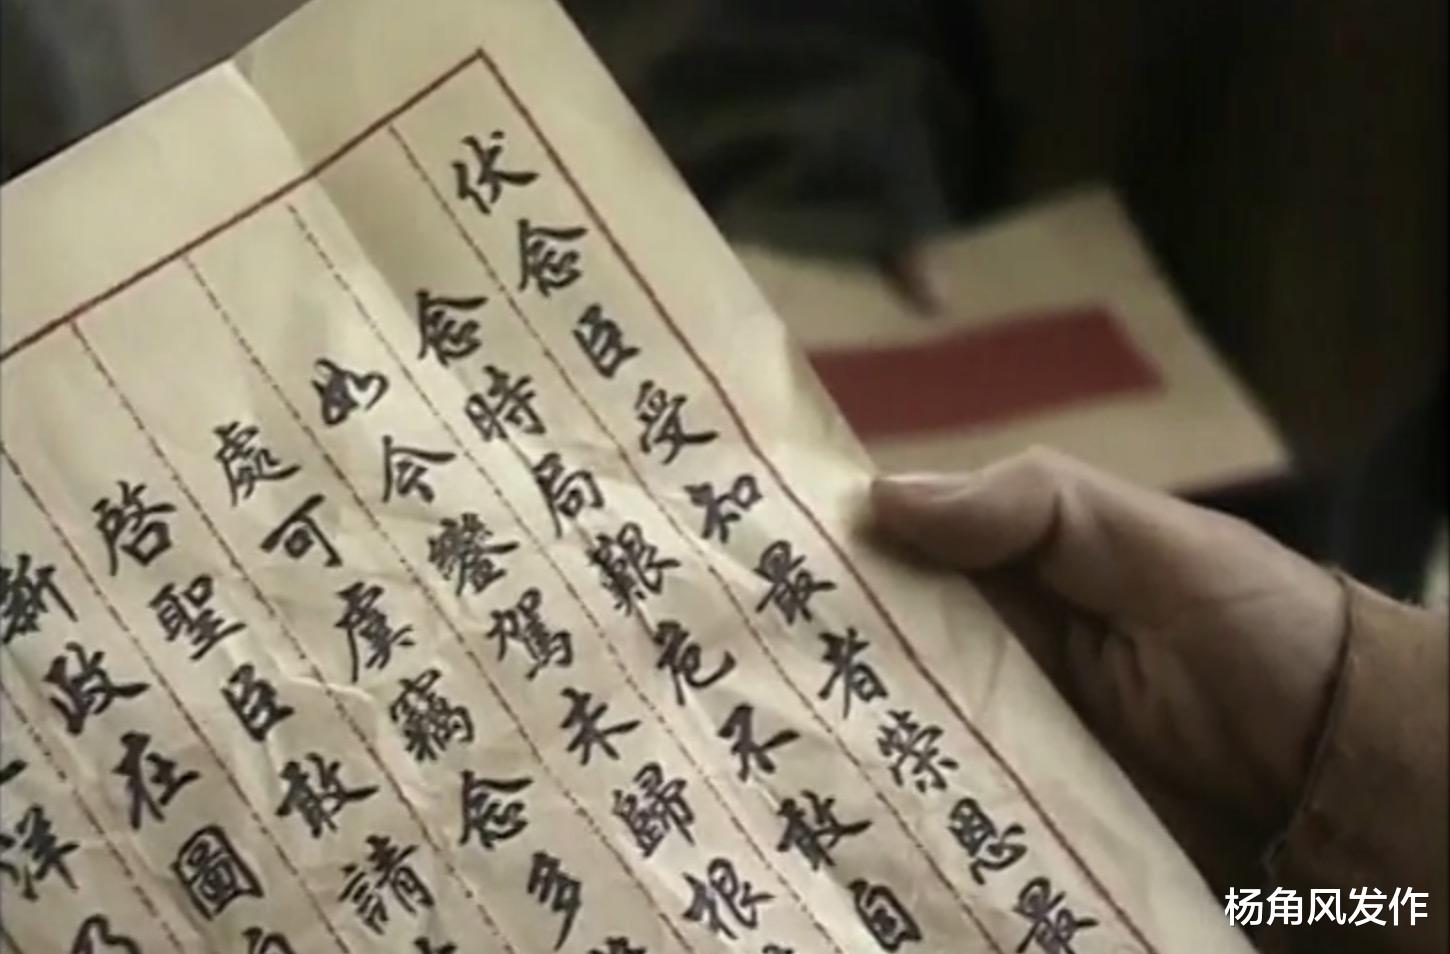 伏念臣受知最者榮恩最
念時局艱危不敢自
如今鑾駕未歸根
處可虞竊念多
啓聖臣敢請
新政在圖
洋乃
杨角风发作